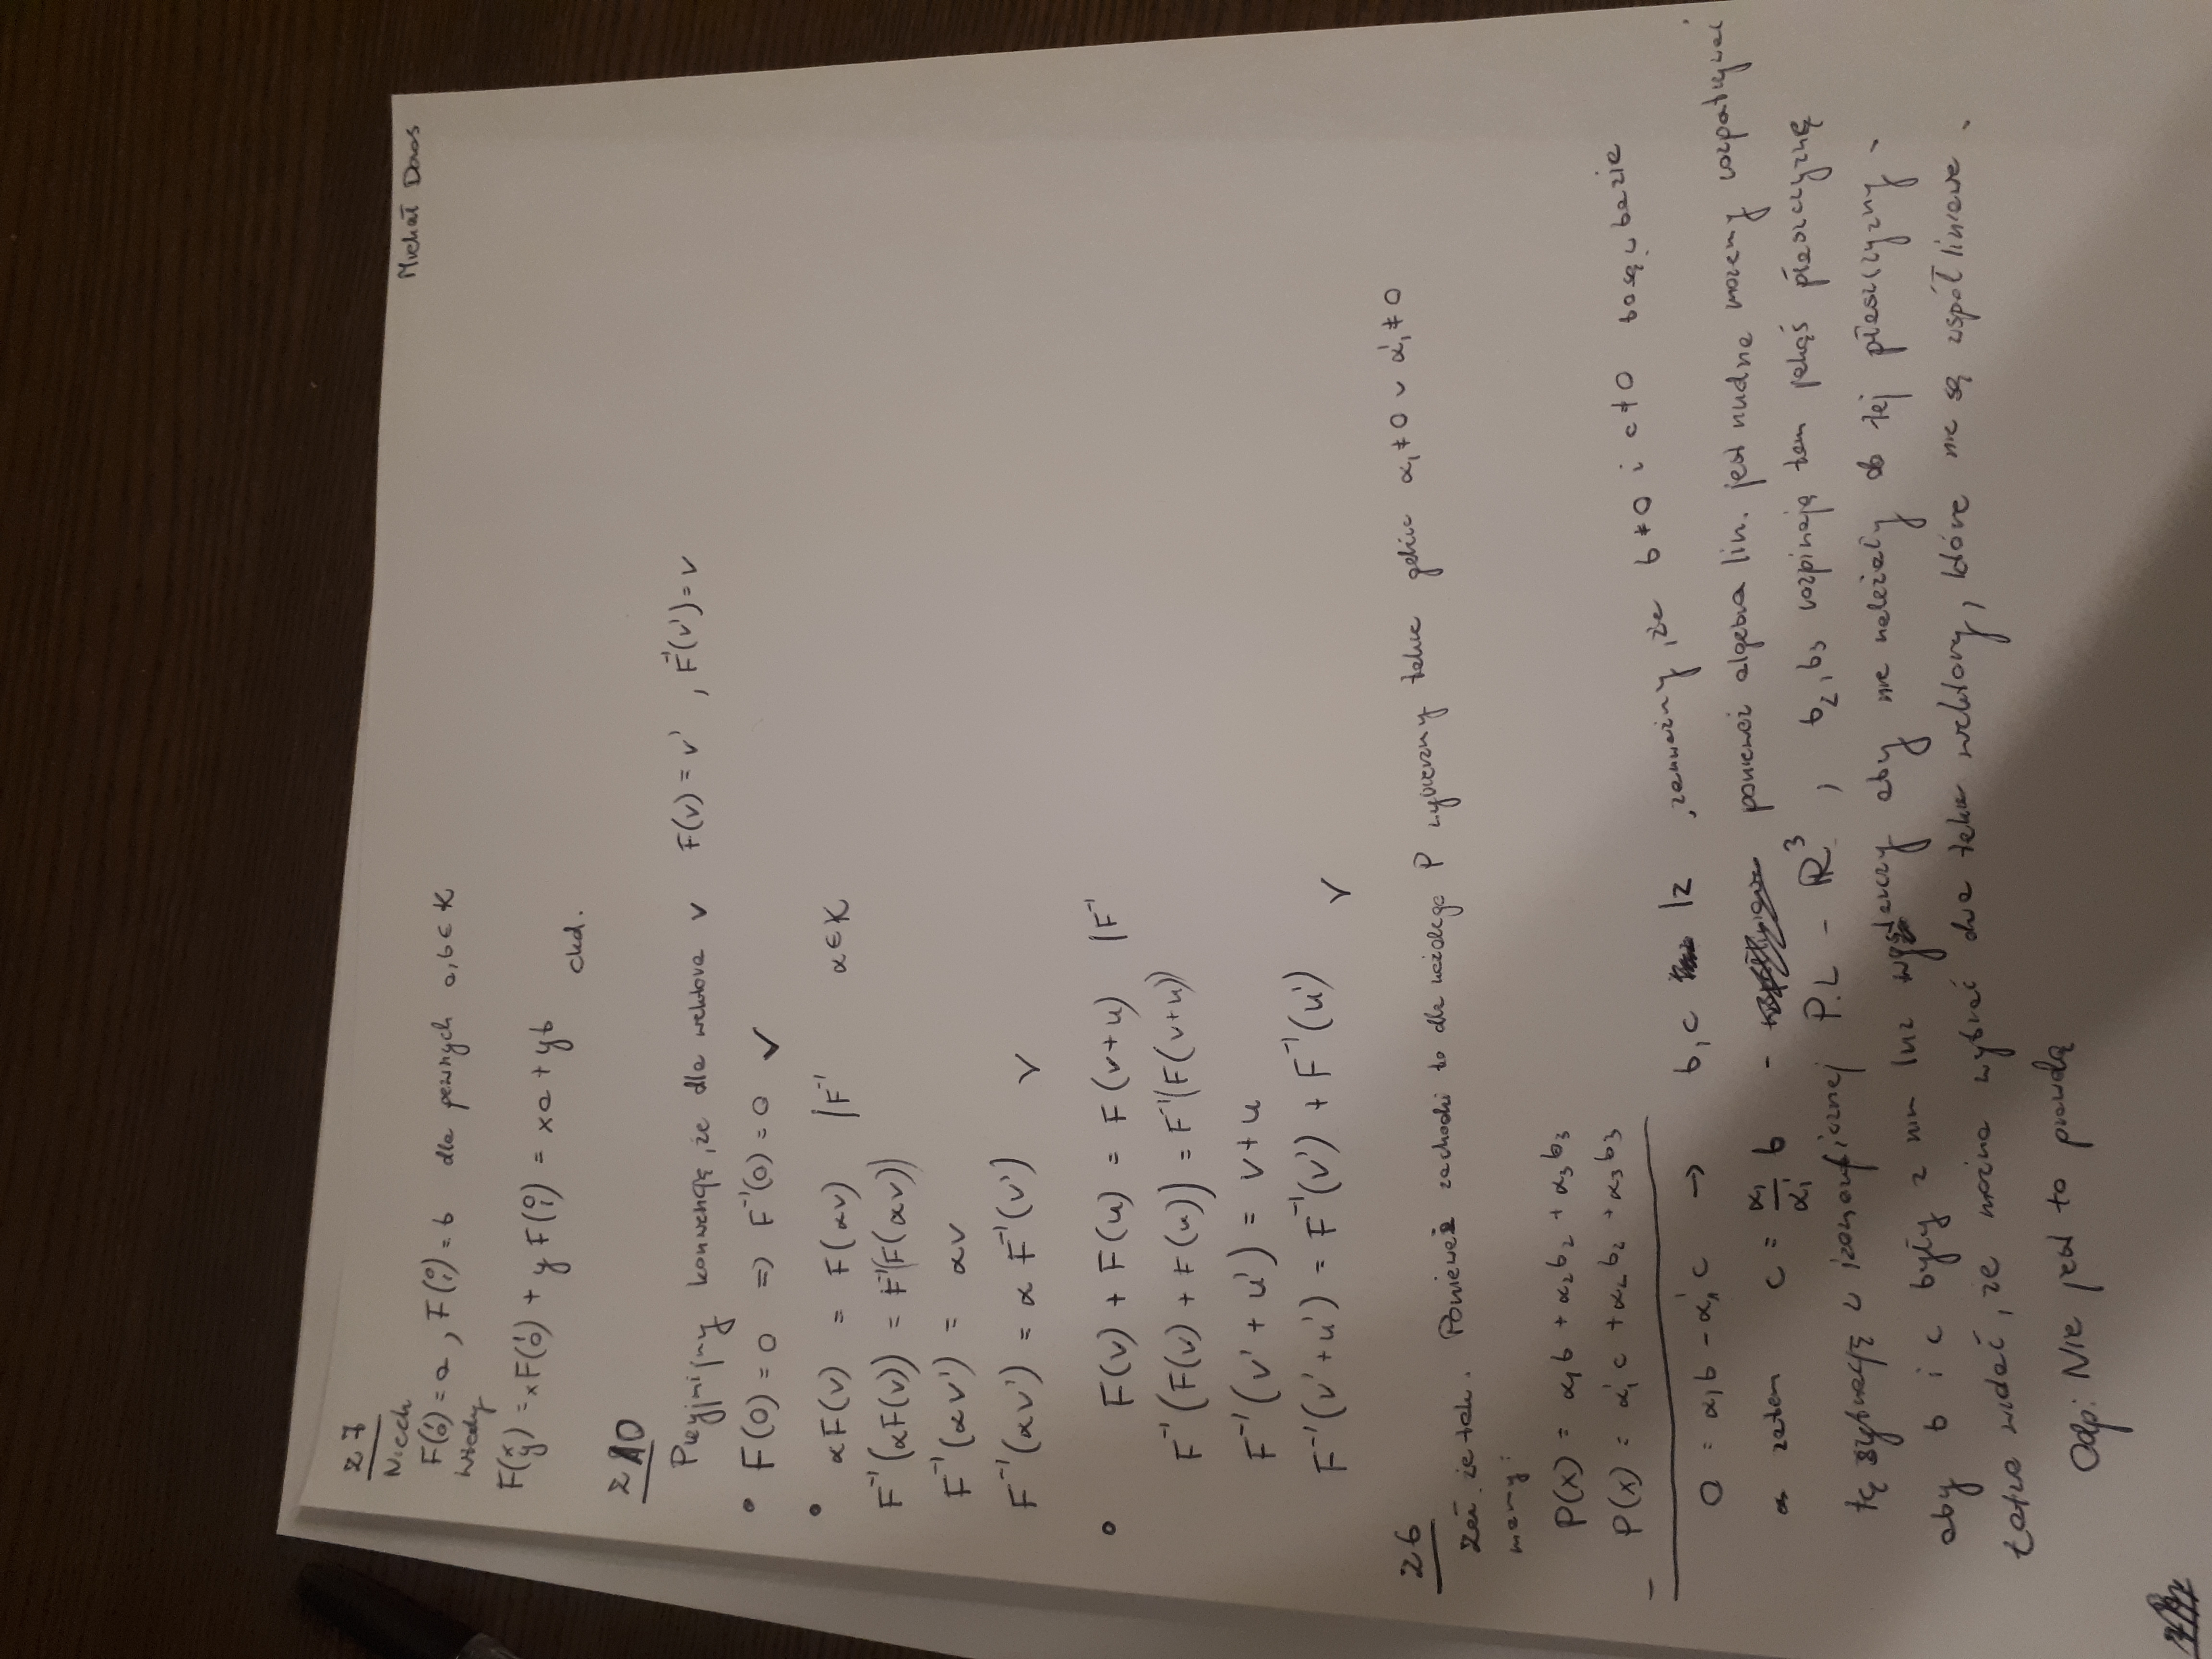 Michał Doos
z 7
Niech
F(1 0) = a , F(0 1) = b dla pewnych a, b ∈ K
Wtedy
F(x y) = xF(1 0) + y F(0 1) = xa + yb
ckd.
z 10
Przyjmijmy konwencję, że dla wektora v F(v) = v' , F⁻¹(v') = v
• F(0) = 0 => F⁻¹(0) = 0 ✓
• αF(v) = F(αv) |F⁻¹ α ∈ K
F⁻¹(αF(v)) = F⁻¹(F(αv))
F⁻¹(αv') = αv
F⁻¹(αv') = α F⁻¹(v') ✓
• F(v) + F(u) = F(v+u) |F⁻¹
F⁻¹(F(v) + F(u)) = F⁻¹(F(v+u))
F⁻¹(v' + u') = v+u
F⁻¹(v'+u') = F⁻¹(v') + F⁻¹(u') ✓
z 6
Zał. że tak. Ponieważ zachodzi to dla każdego P wybierzmy takie gdzie α₁ ≠ 0 ∨ α'₁ ≠ 0
mamy:
P(x) = α₁b + α₂b₂ + α₃b₃
P(x) = α'₁c + α₂b₂ + α₃b₃
0 = α₁b - α'₁c → b, c lz , zauważmy, że b ≠ 0 i c ≠ 0 bo są w bazie
zatem c = α₁/α'₁ b - ponieważ algebra lin. jest nudna możemy rozpatrywać
tę sytuację w izomorficznej P.L - R³ , b₂, b₃ rozpinają tam jakąś płaszczyznę
aby b i c były z nim lnz wystarczy aby nie należały do tej płaszczyzny.
Łatwo widać, że można wybrać dwa takie wektory, które nie są współliniowe.
Odp: Nie jest to prawdą